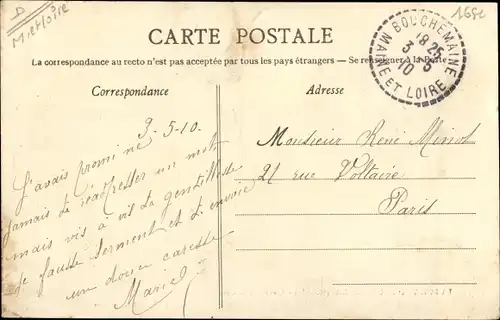 D
M. et Loire
1652
CARTE POSTALE
La correspondance au recto n'est pas acceptée par tous les pays étrangers — Se renseigner à la Poste
BOUCHEMAINE
18 25
3 - 5
10
MAINE ET LOIRE
Correspondance
Adresse
3-5-10.
J'avais promi
jamais de réadresser un mot
mais vis à vis la gentillesse
je fausse serment et t'envoie
un doux caresse
Mariel
Monsieur René Minot
21 rue Voltaire
Paris